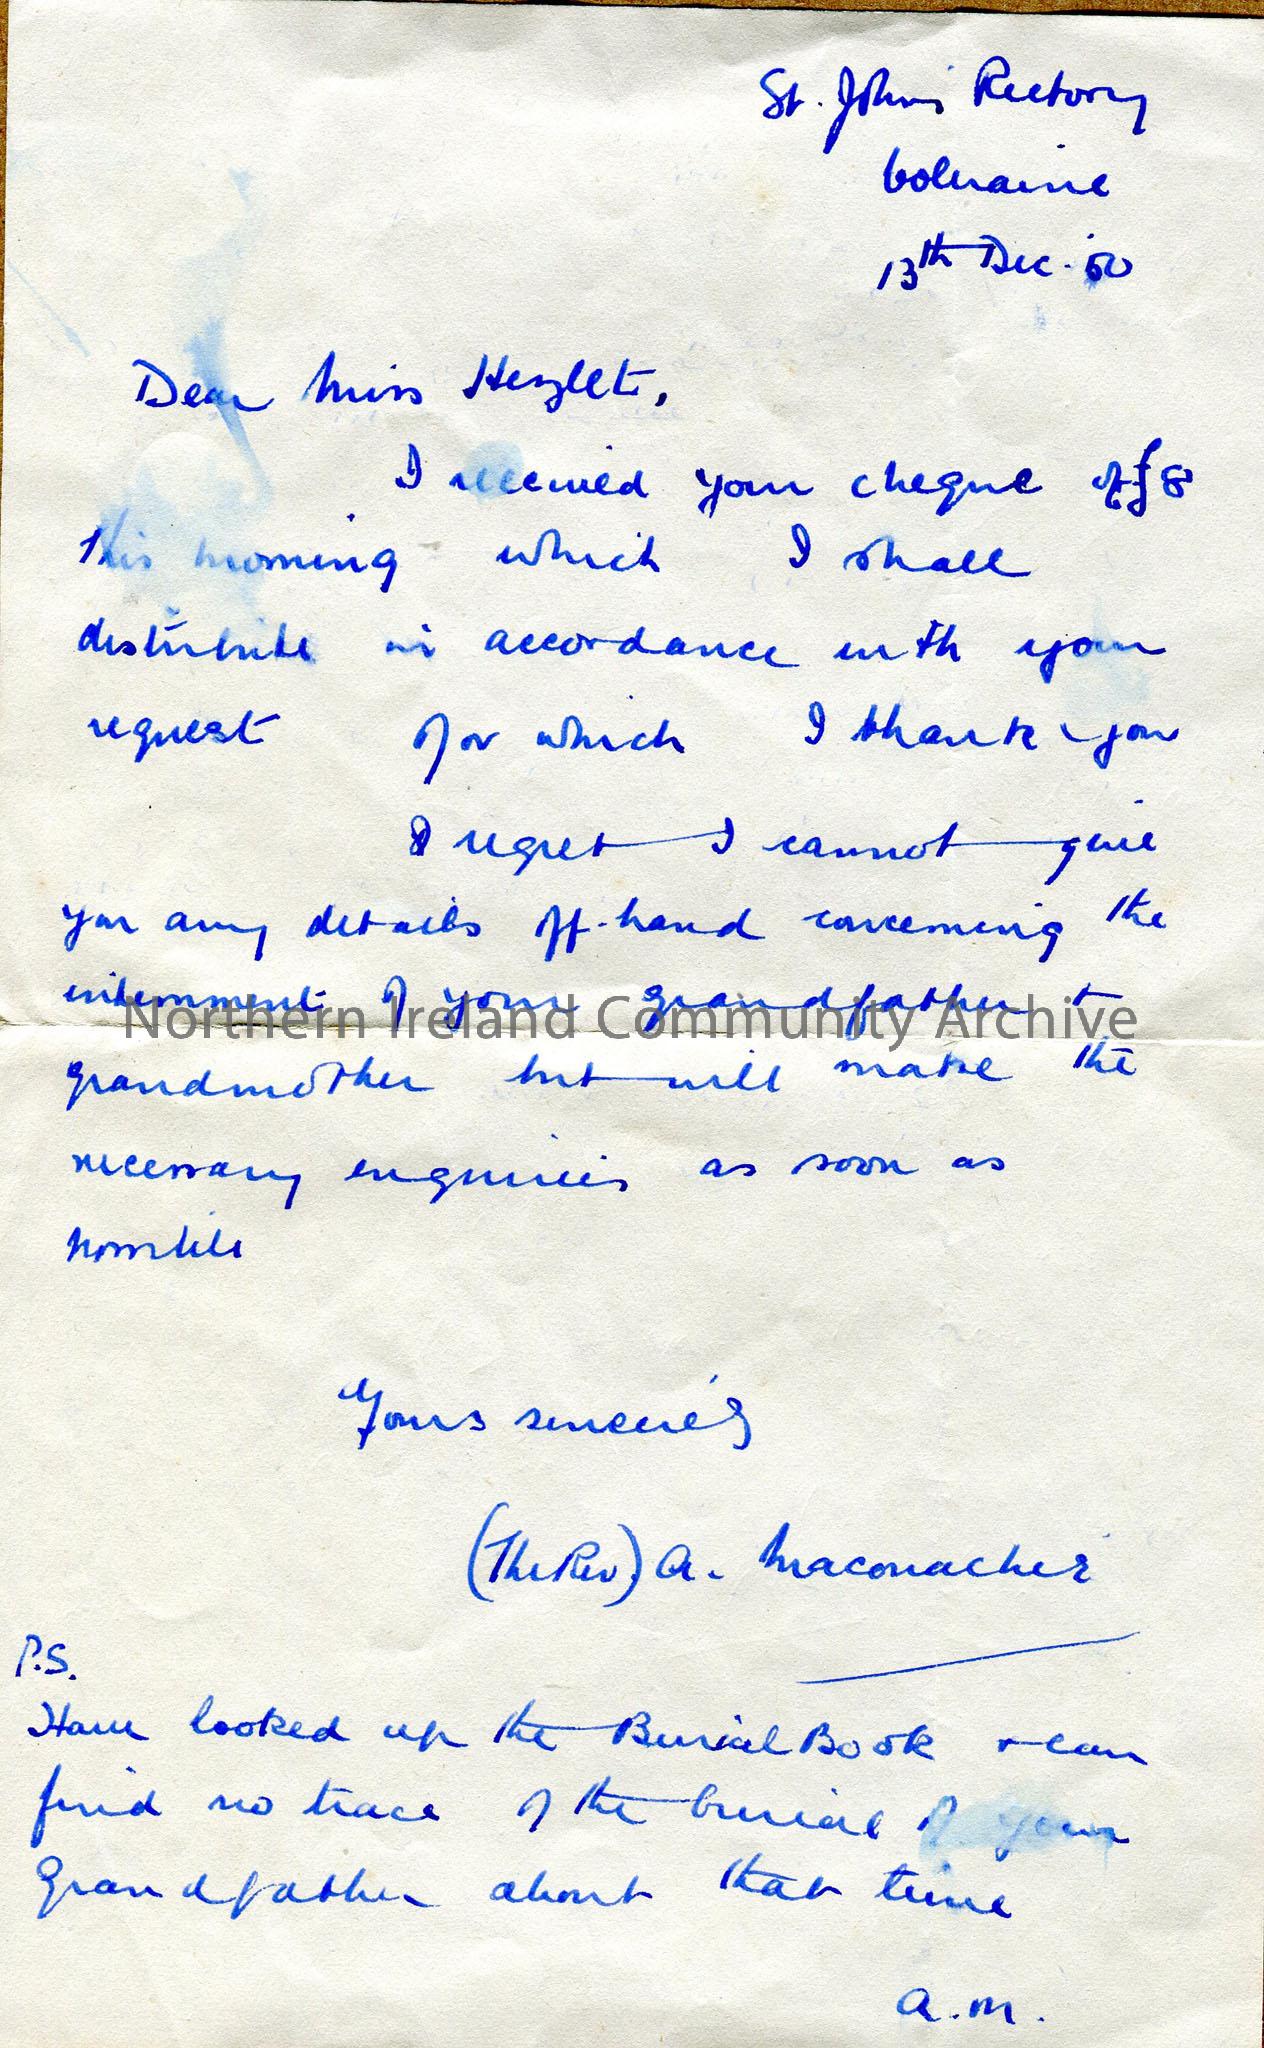 St. John's Rectory
Coleraine
13th Dec. 50
Dear Miss Hezlet,
I received your cheque of £8
this morning which I shall
distribute in accordance with your
request for which I thank you
I regret I cannot give
you any details off-hand concerning the
internment of your grandfather +
Northern Ireland Community Archive
grandmother but will make the
necessary enquiries as soon as
possible
Yours sincerely
(The Rev.) A. Maconachie
P.S.
Have looked up the Burial Book + can
find no trace of the burial of your
Grandfather about that time
A.M.